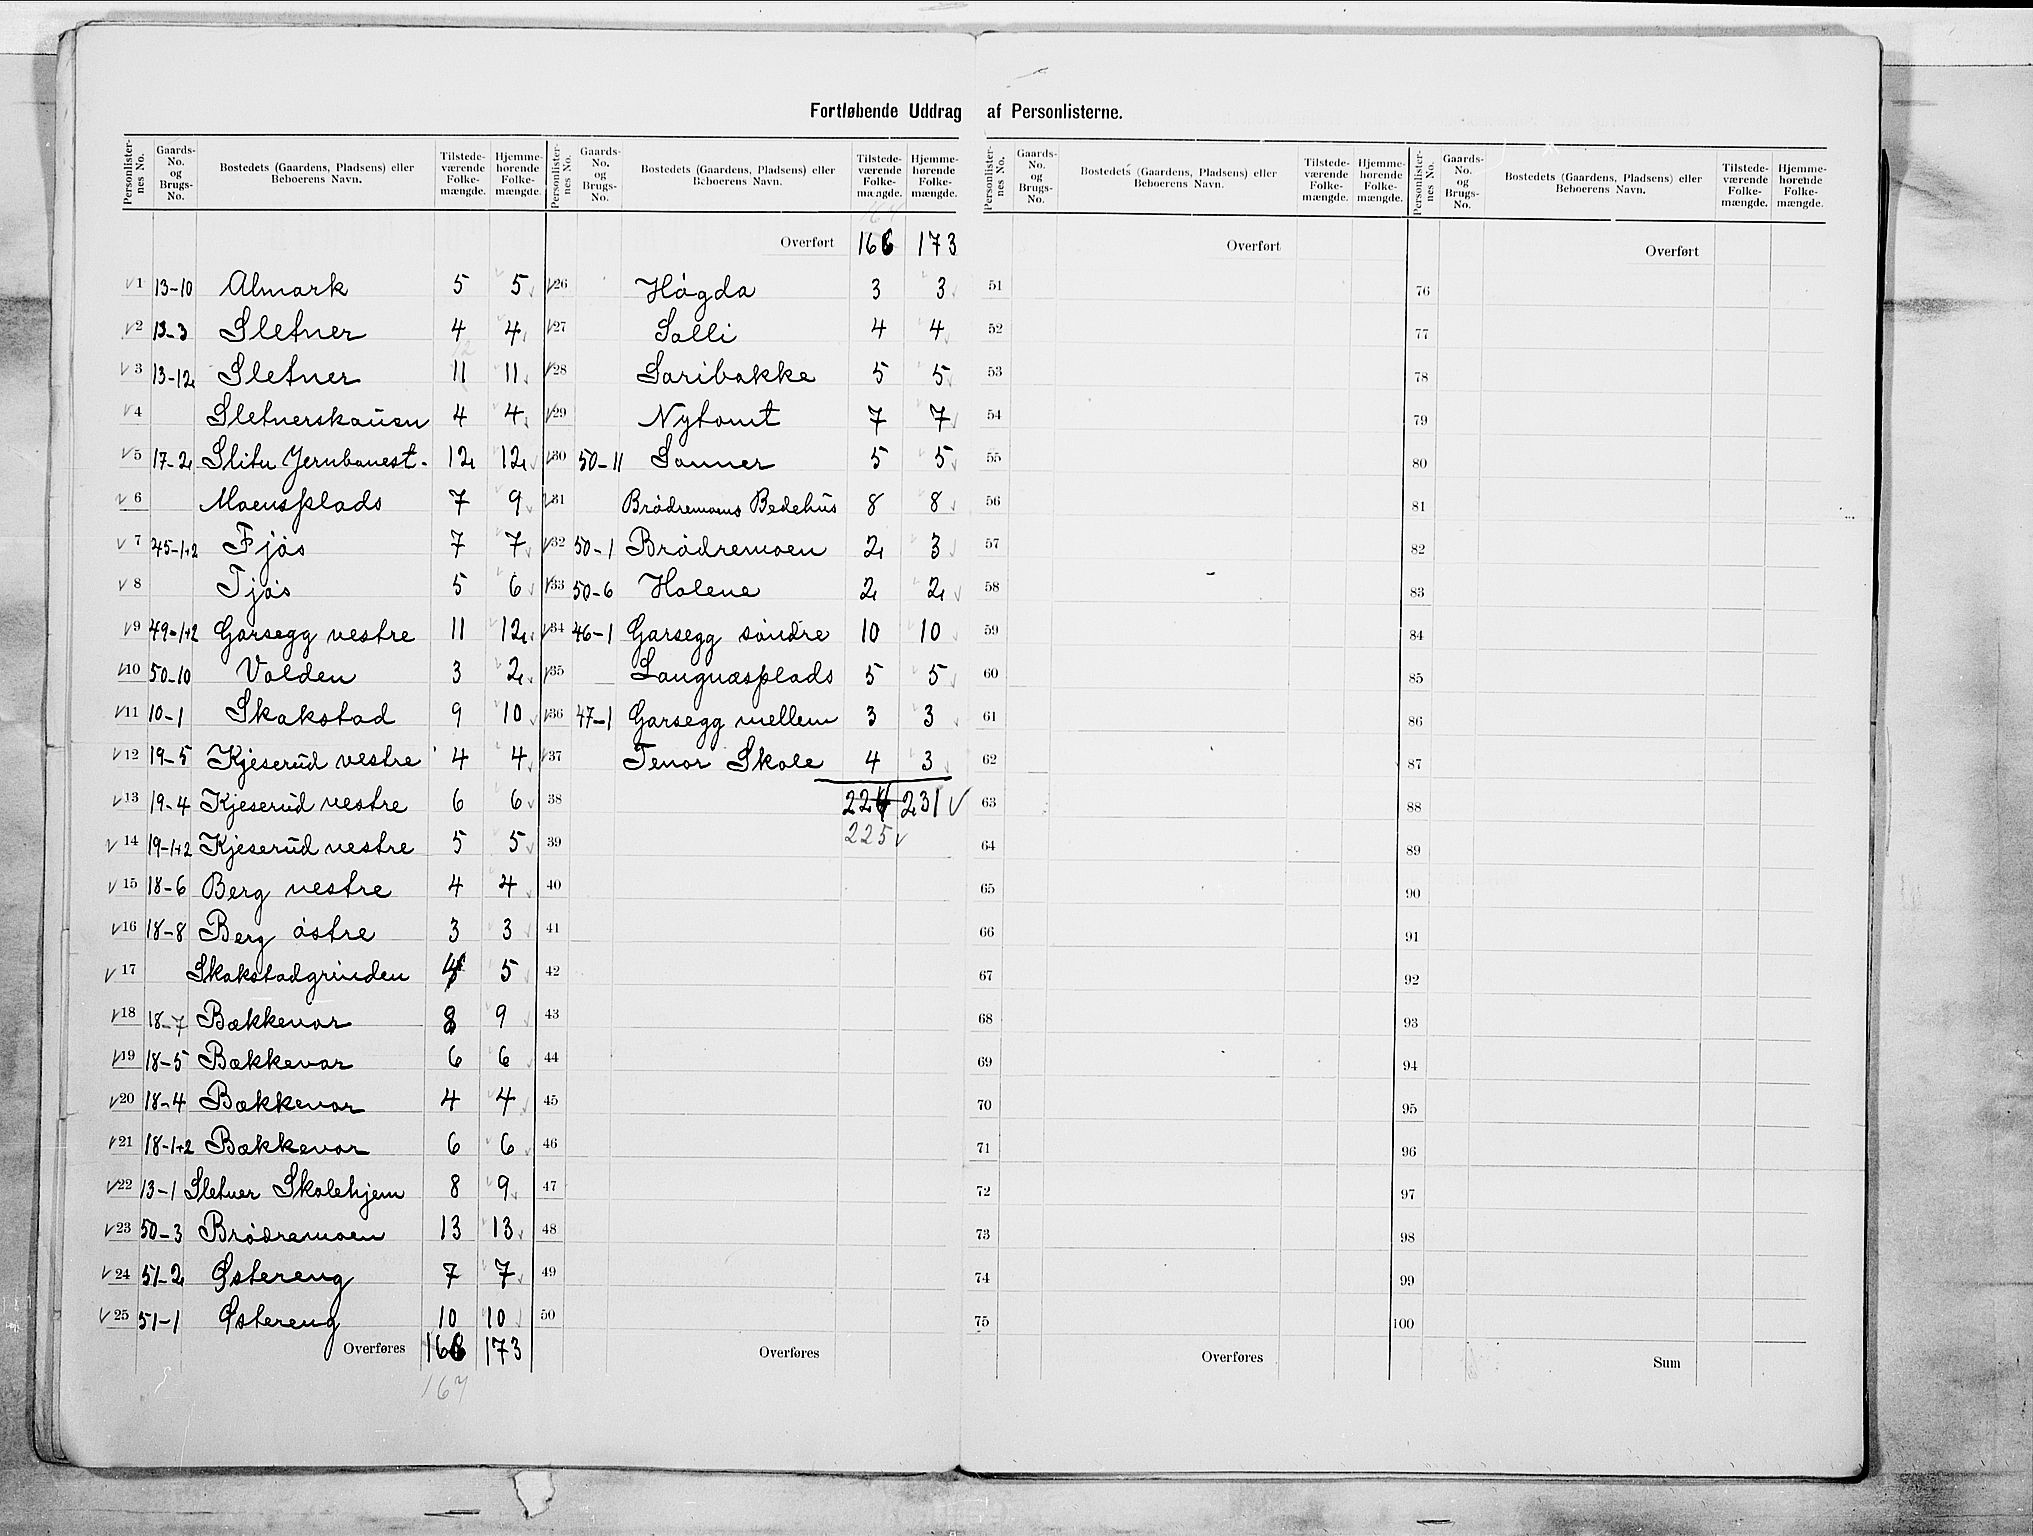 Fortløbende Uddrag af Personlisterne.
Personlister-nes No. | Gaards-No. og Brugs-No. | Bostedets (Gaardens, Pladsens) eller Beboerens Navn. | Tilstede-værende Folke-mængde. | Hjemme-hørende Folke-mængde.
1 13-10 Almark 5 5
2 13-3 Sletner 4 4
3 13-12 Sletner 11 11
4 Sletnerskauen 4 4
5 17-2 Slitu Jernbanest. 12 12
6 Moensplads 7 9
7 45-1+2 Fjøs 7 7
8 Fjøs 5 6
9 49-1+2 Garsegg vestre 11 12
10 50-10 Volden 3 2
11 10-1 Skakstad 9 10
12 19-5 Kjeserud vestre 4 4
13 19-4 Kjeserud vestre 6 6
14 19-1+2 Kjeserud vestre 5 5
15 18-6 Berg vestre 4 4
16 18-8 Berg østre 3 3
17 Skakstadgrinden 5
18 18-7 Bækkevar 8 9
19 18-5 Bækkevar 6 6
20 18-4 Bækkevar 4 4
21 18-1+2 Bækkevar 6 6
22 13-1 Sletner Skolehjem 8 9
23 50-3 Brødremoen 13 13
24 51-2 Østereng 7 7
25 51-1 Østereng 10 10
Overføres 166 173
167
Personlister-nes No. | Gaards-No. og Brugs-No. | Bostedets (Gaardens, Pladsens) eller Beboerens Navn. | Tilstede-værende Folke-mængde. | Hjemme-hørende Folke-mængde.
167
Overført 166 173
26 Høgda 3 3
27 Solli 4 4
28 Saribakke 5 5
29 Nytomt 7 7
30 50-11 Sanner 5 5
31 Brødremoens Bedehus 8 8
32 50-1 Brødremoen 2 3
33 50-6 Holene 2 2
34 46-1 Garsegg søndre 10 10
35 Langnæsplads 5 5
36 47-1 Garsegg mellem 3 3
37 Tenor Skole 4 3
38 224 231
39 225
40
41
42
43
44
45
46
47
48
49
50
Overføres
Personlister-nes No. | Gaards-No. og Brugs-No. | Bostedets (Gaardens, Pladsens) eller Beboerens Navn. | Tilstede-værende Folke-mængde. | Hjemme-hørende Folke-mængde.
Overført
51
52
53
54
55
56
57
58
59
60
61
62
63
64
65
66
67
68
69
70
71
72
73
74
75
Overføres
Personlister-nes No. | Gaards-No. og Brugs-No. | Bostedets (Gaardens, Pladsens) eller Beboerens Navn. | Tilstede-værende Folke-mængde. | Hjemme-hørende Folke-mængde.
Overført
76
77
78
79
80
81
82
83
84
85
86
87
88
89
90
91
92
93
94
95
96
97
98
99
100
Sum